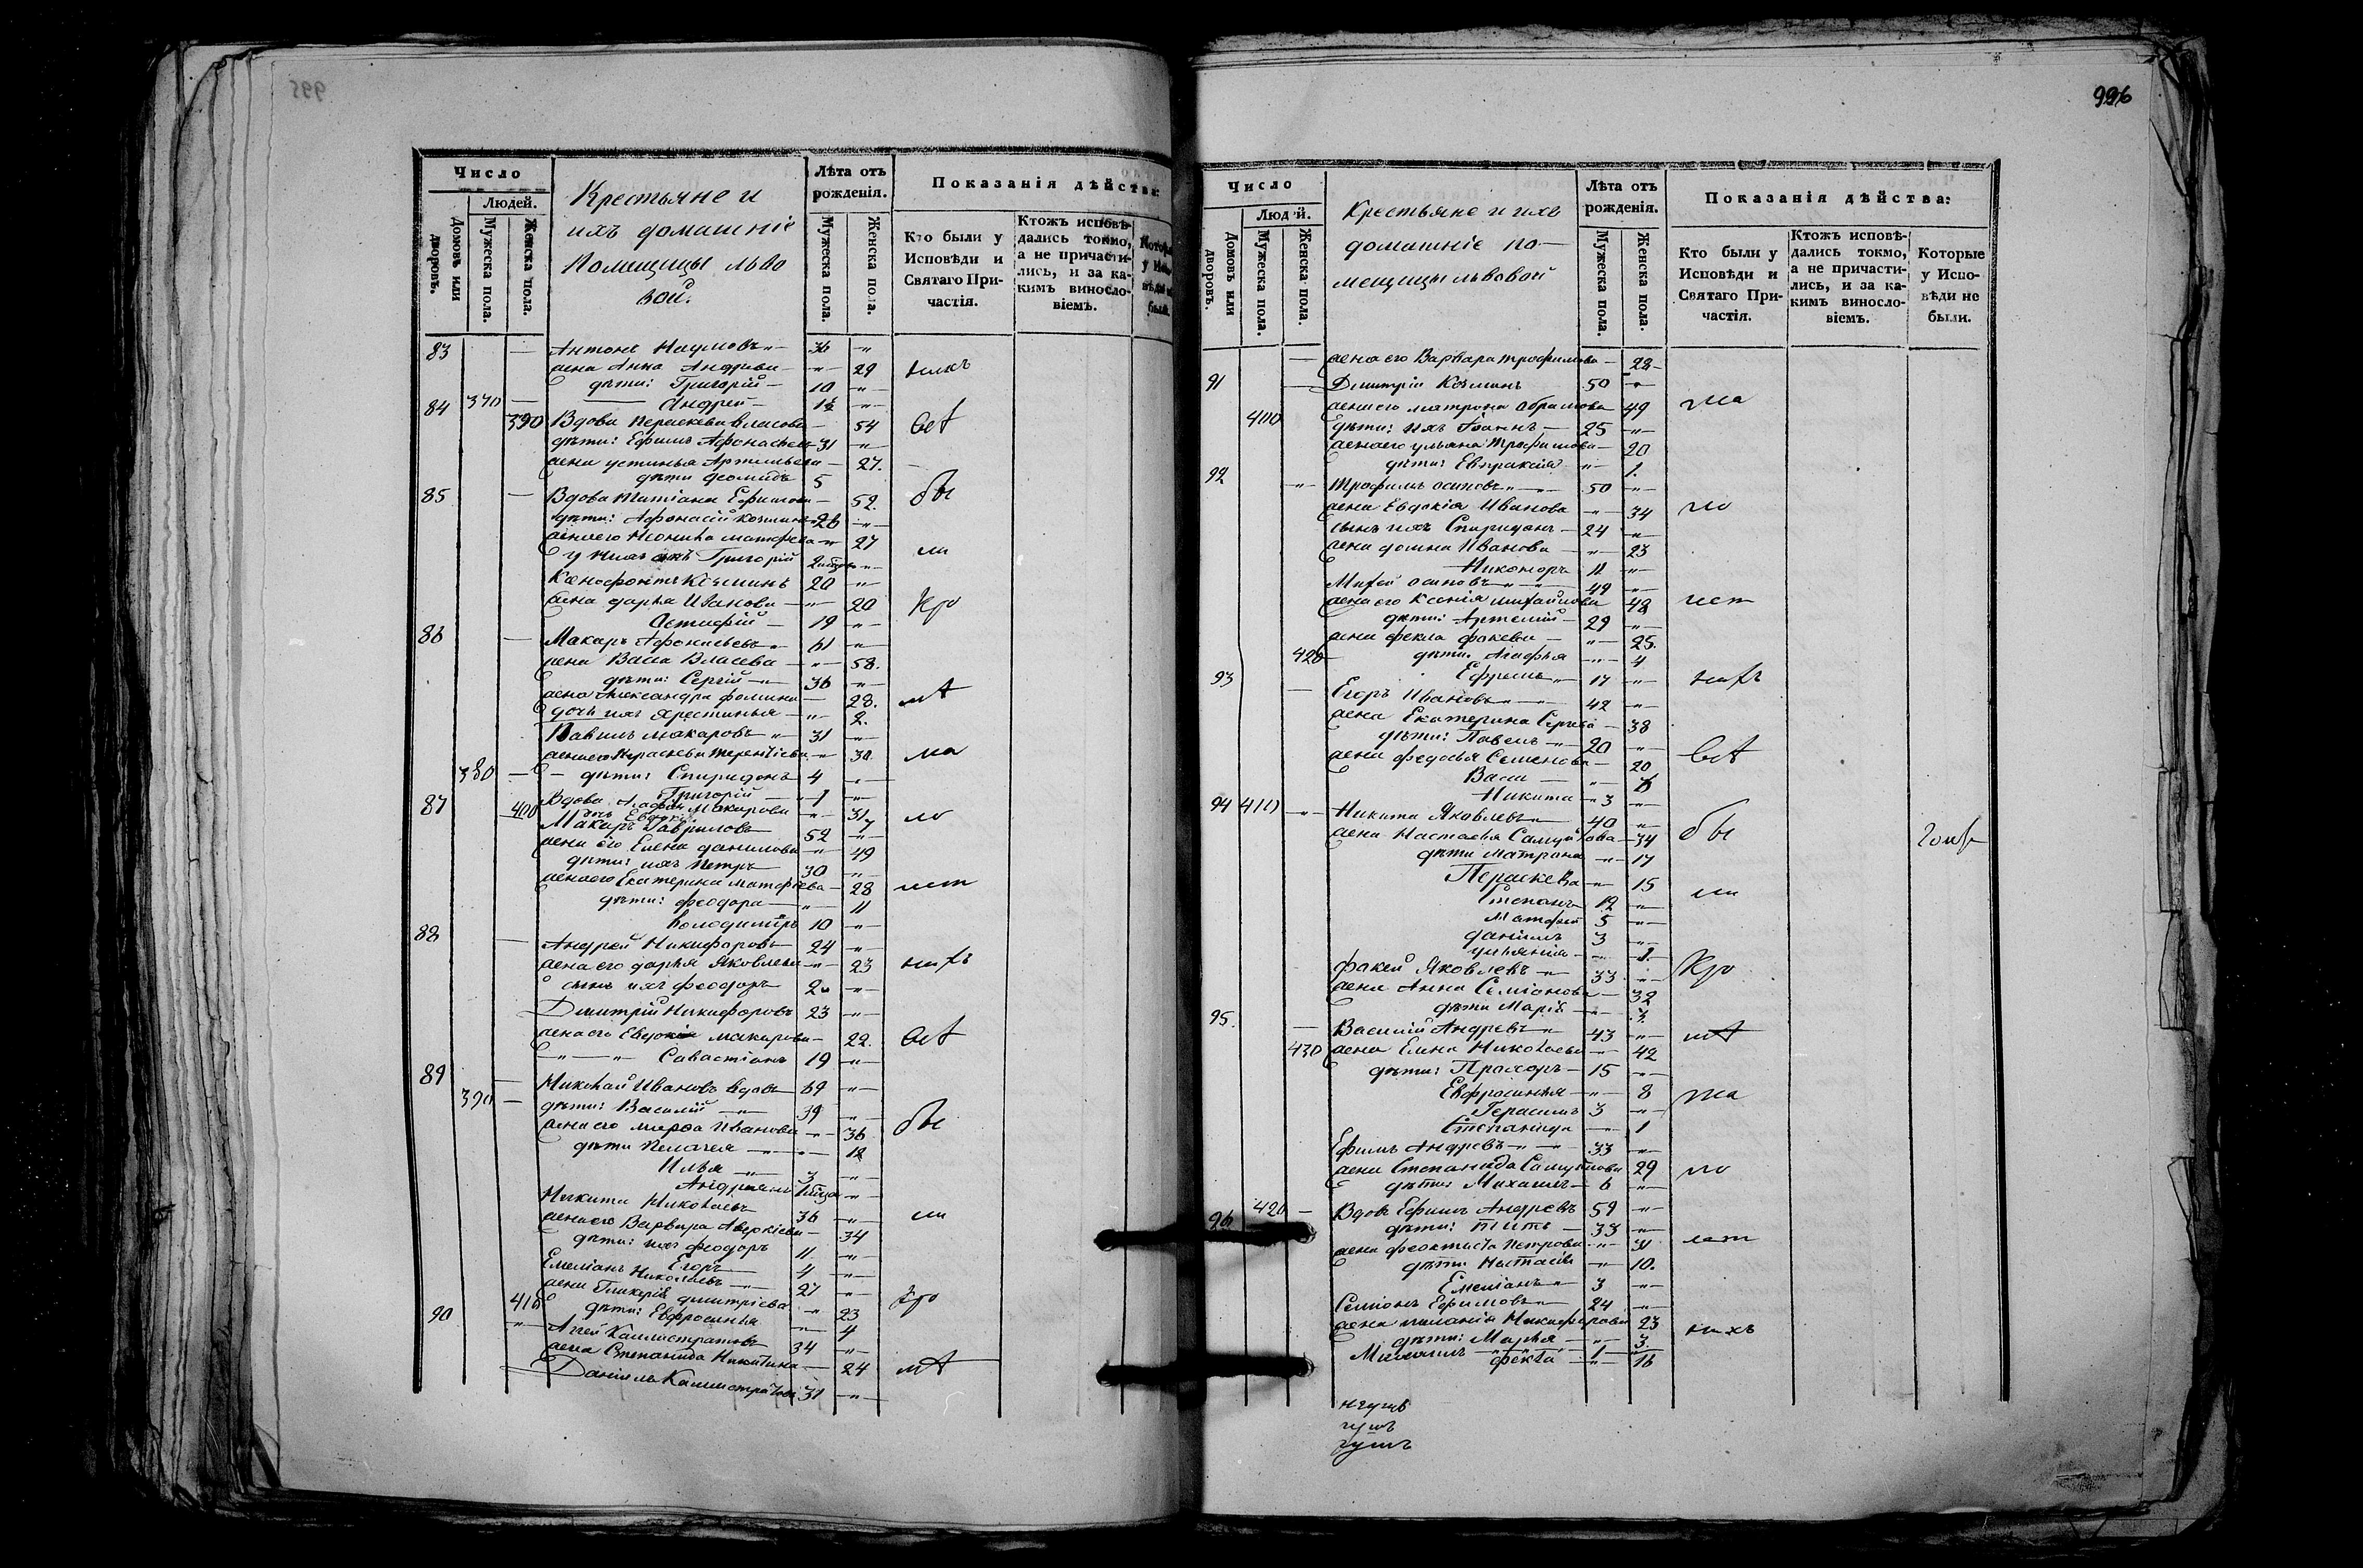 995
Число
Людей.
Домовъ или дворовъ.
Мужеска пола.
Женска пола.
Крестьяне и
ихъ домашніе
Помещицы Льво
вой.
Лѣта отъ рожденія.
Мужеска пола.
Женска пола.
Показанія дѣйства:
Кто были у Исповѣди и Святаго Причастія.
Ктожъ исповѣдались токмо, а не причастились, и за какимъ винословіемъ.
83 — Антонъ Наумовъ 36
жена Анна Андреева 29
дѣти: Григорій 10
84 370 — Андрей
390 Вдова Параскева Власова 54
дѣти: Ефимъ Афонасьевъ 31
жена Устинья Артемьева 27.
дѣти 5
85 — Вдова Татіана Ефимова 52.
дѣти: Афонасій Козминъ 26
жена его Неонила Матфеева 27
у нихъ сынъ Григорій
Ксенофонтъ Козминъ 20
жена Дарья Иванова 20
19
86 — Макаръ Афонасьевъ 61
жена Васса Власова 58.
дѣти: Сергій 36
жена Александра Фомина 28.
дочь ихъ Хрестинья 2.
Павелъ Макаровъ 31
жена его Параскева Терентіева 30
380 — дѣти: Спиридонъ 4
Григорій 1
87 400 Вдова Агафія Макарова 31
дочь Евдокія 7
Макаръ Гавриловъ 52
жена его Елена Данилова 49
дѣти: ихъ Петръ 30
жена его Екатерина Матфеева 28
дѣти: Феодора 11
Володимиръ 10
88 — Андрей Никифоровъ 24
жена его Дарья Яковлева 23
сынъ ихъ Феодоръ
Дмитрій Никифоровъ 23
жена его Евдокія Макарова 22.
Савастіанъ 19
89 — Николай Ивановъ вдовъ 69
390 — дѣти: Василій 39
жена его Марфа Иванова 36
дѣти Пелагея
Илья 3
Андреянъ
Никита Николаевъ 36
жена его Варвара Аверкіева 34
дѣти: ихъ Феодоръ 11
Егоръ 4
Емеліанъ Николаевъ 27
жена Гликерія Дмитріева 23
410 дѣти: Евфросинья 4
90 Агей Калистратовъ 34
жена Степанида Никитина 24
Даніилъ Калистратовъ 31
996
Число
Людей.
Домовъ или дворовъ.
Мужеска пола.
Женска пола.
Крестьяне и ихъ
домашніе по-
мещицы Львовой
Лѣта отъ рожденія.
Мужеска пола.
Женска пола.
Показанія дѣйства:
Кто были у Исповѣди и Святаго Причастія.
Ктожъ исповѣдались токмо, а не причастились, и за какимъ винословіемъ.
Которые у Исповѣди не были.
— жена его Варвара Трофимова 28
91 — Дмитрій Козминъ 50
жена его Матрона Абрамова 49
400 дѣти: ихъ Іоаннъ 25
жена его Ульяна Трофимова 20
дѣти: Евпраксія 1.
92 — Трофимъ Осиповъ 50
жена Евдокія Иванова 34
сынъ ихъ Спиридонъ 24
жена Домна Иванова 23
Никоноръ 11
Михей Осиповъ 49
жена его Ксенія Михайлова 48
дѣти: Артемій 29
жена Фекла Фокеева 25.
420 дѣти: Агафья 4
Ефремъ 17
93 — Егоръ Ивановъ 42
жена Екатерина Сергеева 38
дѣти: Павелъ 20
жена Федосья Семенова 20
Васса
Никита 3
94 410 — Никита Яковлевъ 40
жена Настасья Самуйлова 34
дѣти Матрона 17
Параскева 15
Степанъ 12
Матфей 5
Даніилъ 3
1.
Фокей Яковлевъ 33
жена Анна Семіонова 32
дѣти Марія 3.
95. — Василій Андревъ 43
430 жена Елена Николаева 42
дѣти: Прохоръ 15
Евфросинья 8
Герасимъ 3
Степанида 1
Ефимъ Андревъ 33
жена Степанида Самуйлова 29
дѣти: Михаилъ 6
96 420 — Вдовъ Ефимъ Андревъ 59
дѣти: Титъ 33
жена Феоктиста Петрова 31
дѣти: Настасія 10.
Емеліанъ 3
Семіонъ Ефимовъ 24
жена Меланія Никифорова 23
дѣти: Марья 3.
1
Фекла 16